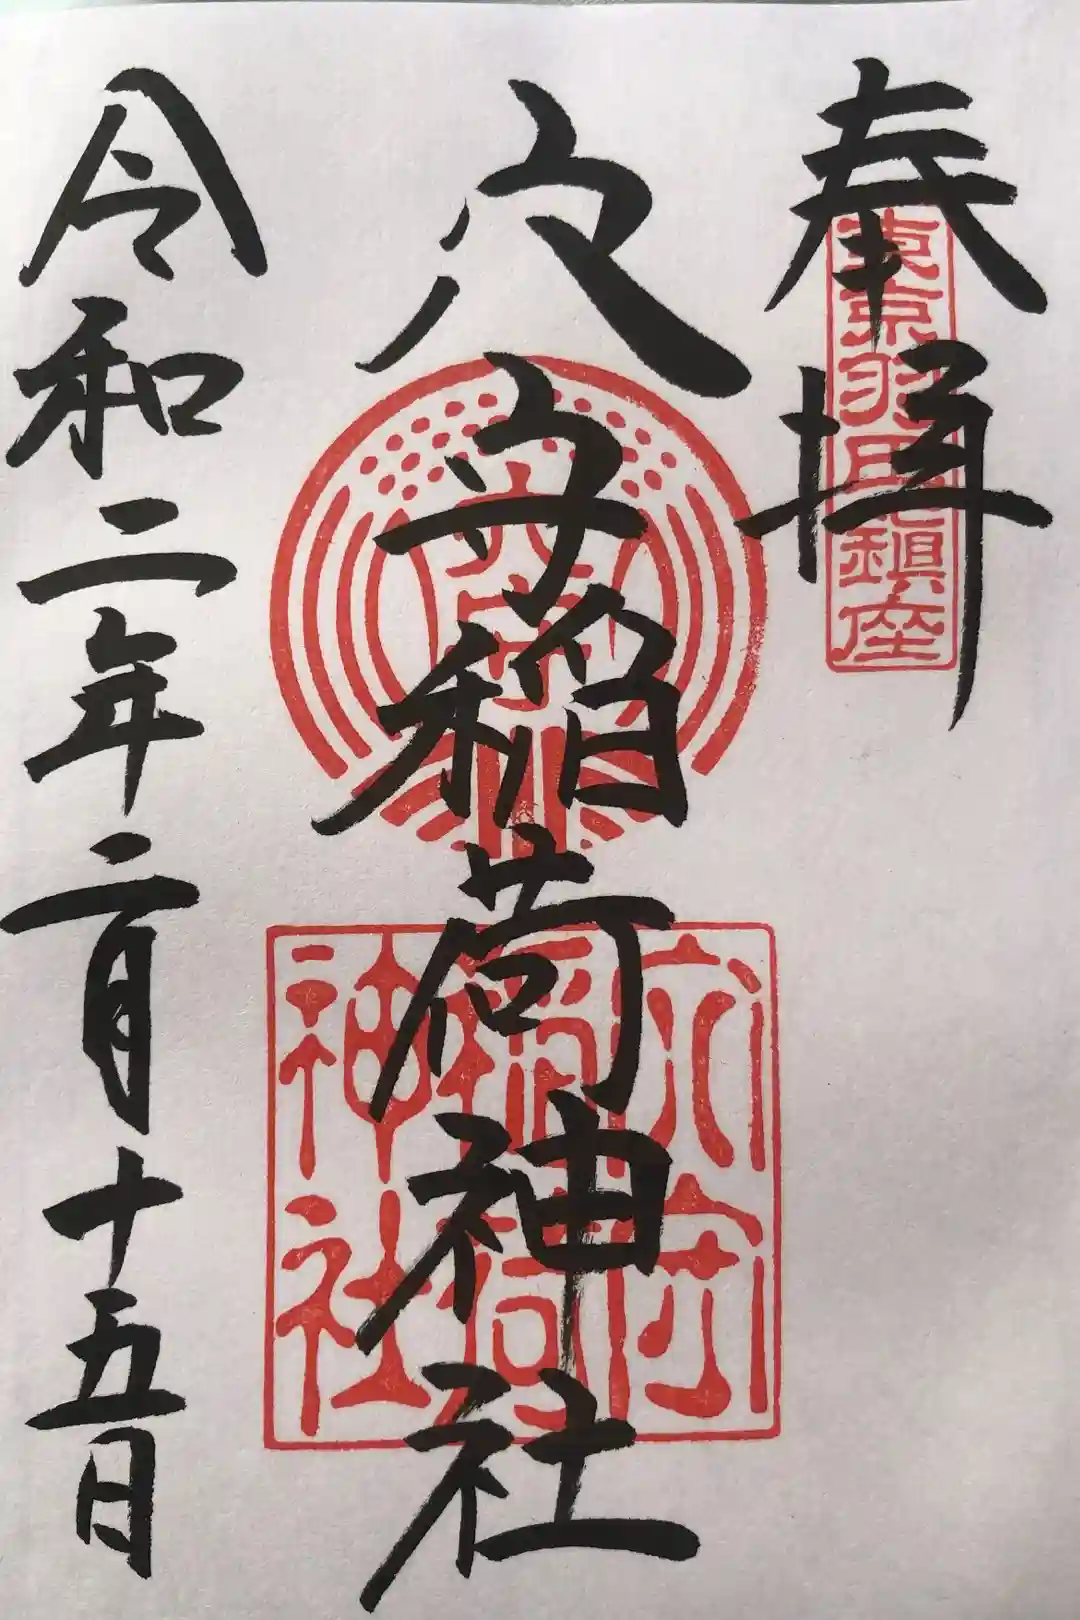 奉拝
東京羽田鎮座
穴守稲荷神社
穴守
穴守
稲荷
神社
令和二年二月十五日